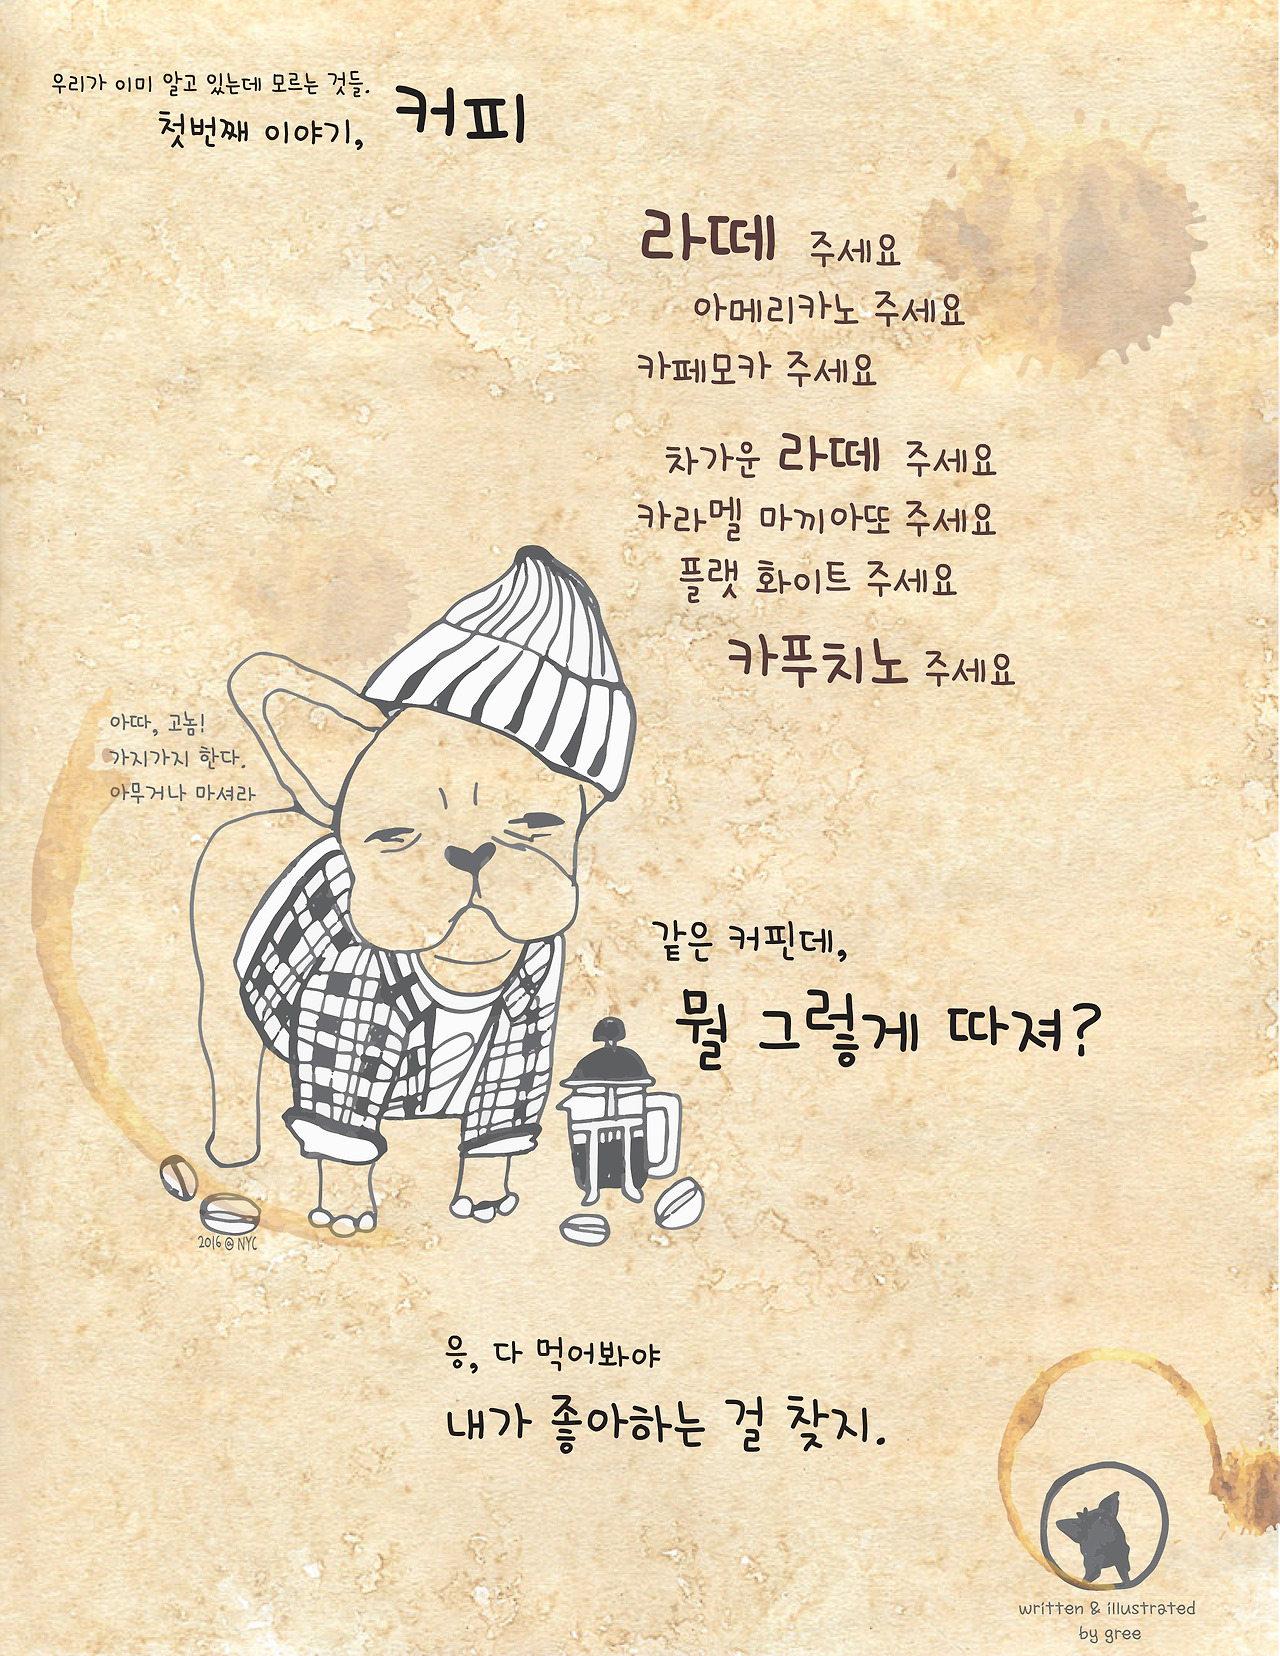 우리가 이미 알고 있는데 모르는 것들.
첫번째 이야기, 커피
라떼 주세요
아메리카노 주세요
카페모카 주세요
차가운 라떼 주세요
카라멜 마끼아또 주세요
플랫 화이트 주세요
카푸치노 주세요
아따, 고놈!
가지가지 한다.
아무거나 마셔라
같은 커핀데,
뭘 그렇게 따져?
2016 @ NYC
응, 다 먹어봐야
내가 좋아하는 걸 찾지.
written & illustrated
by gree